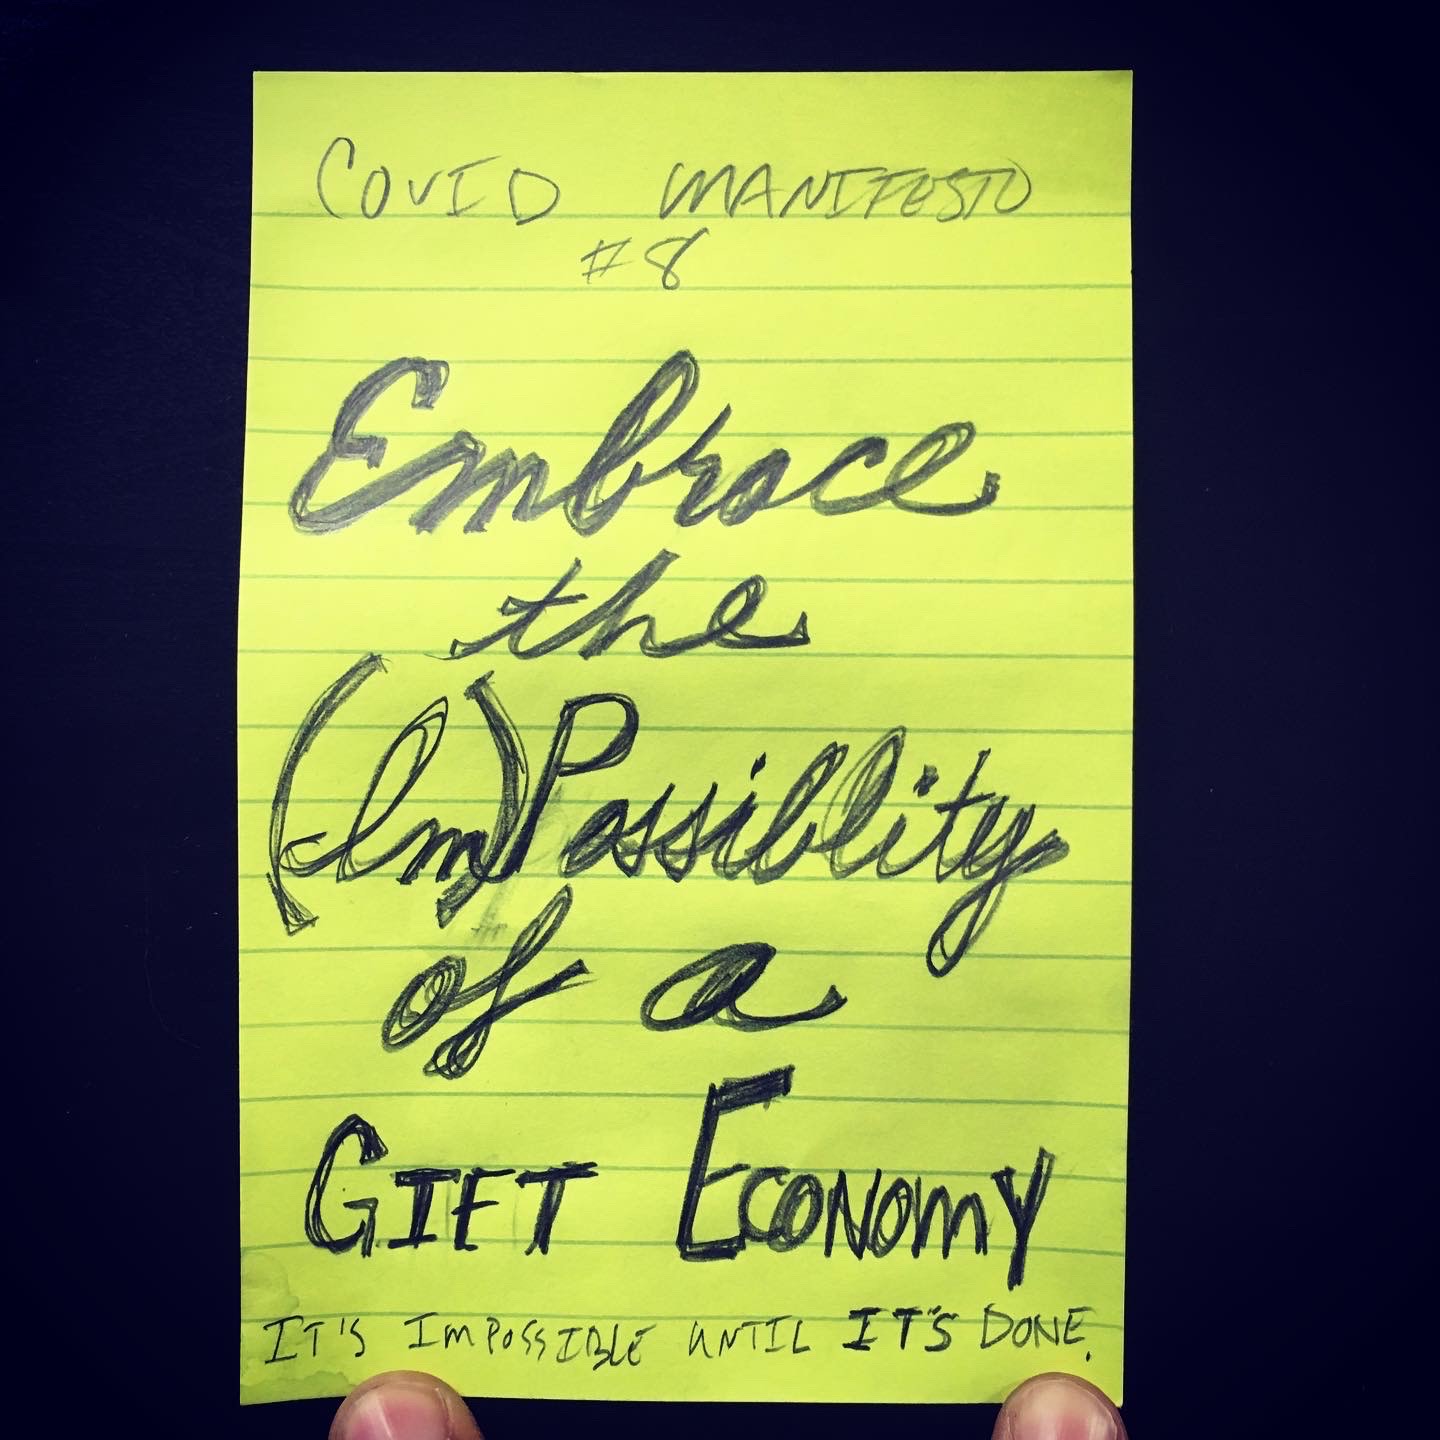 COVID MANIFESTO
#8
Embrace
the
(Im)Possiblity
of a
GIFT ECONOMY
IT'S IMPOSSIBLE UNTIL IT'S DONE.